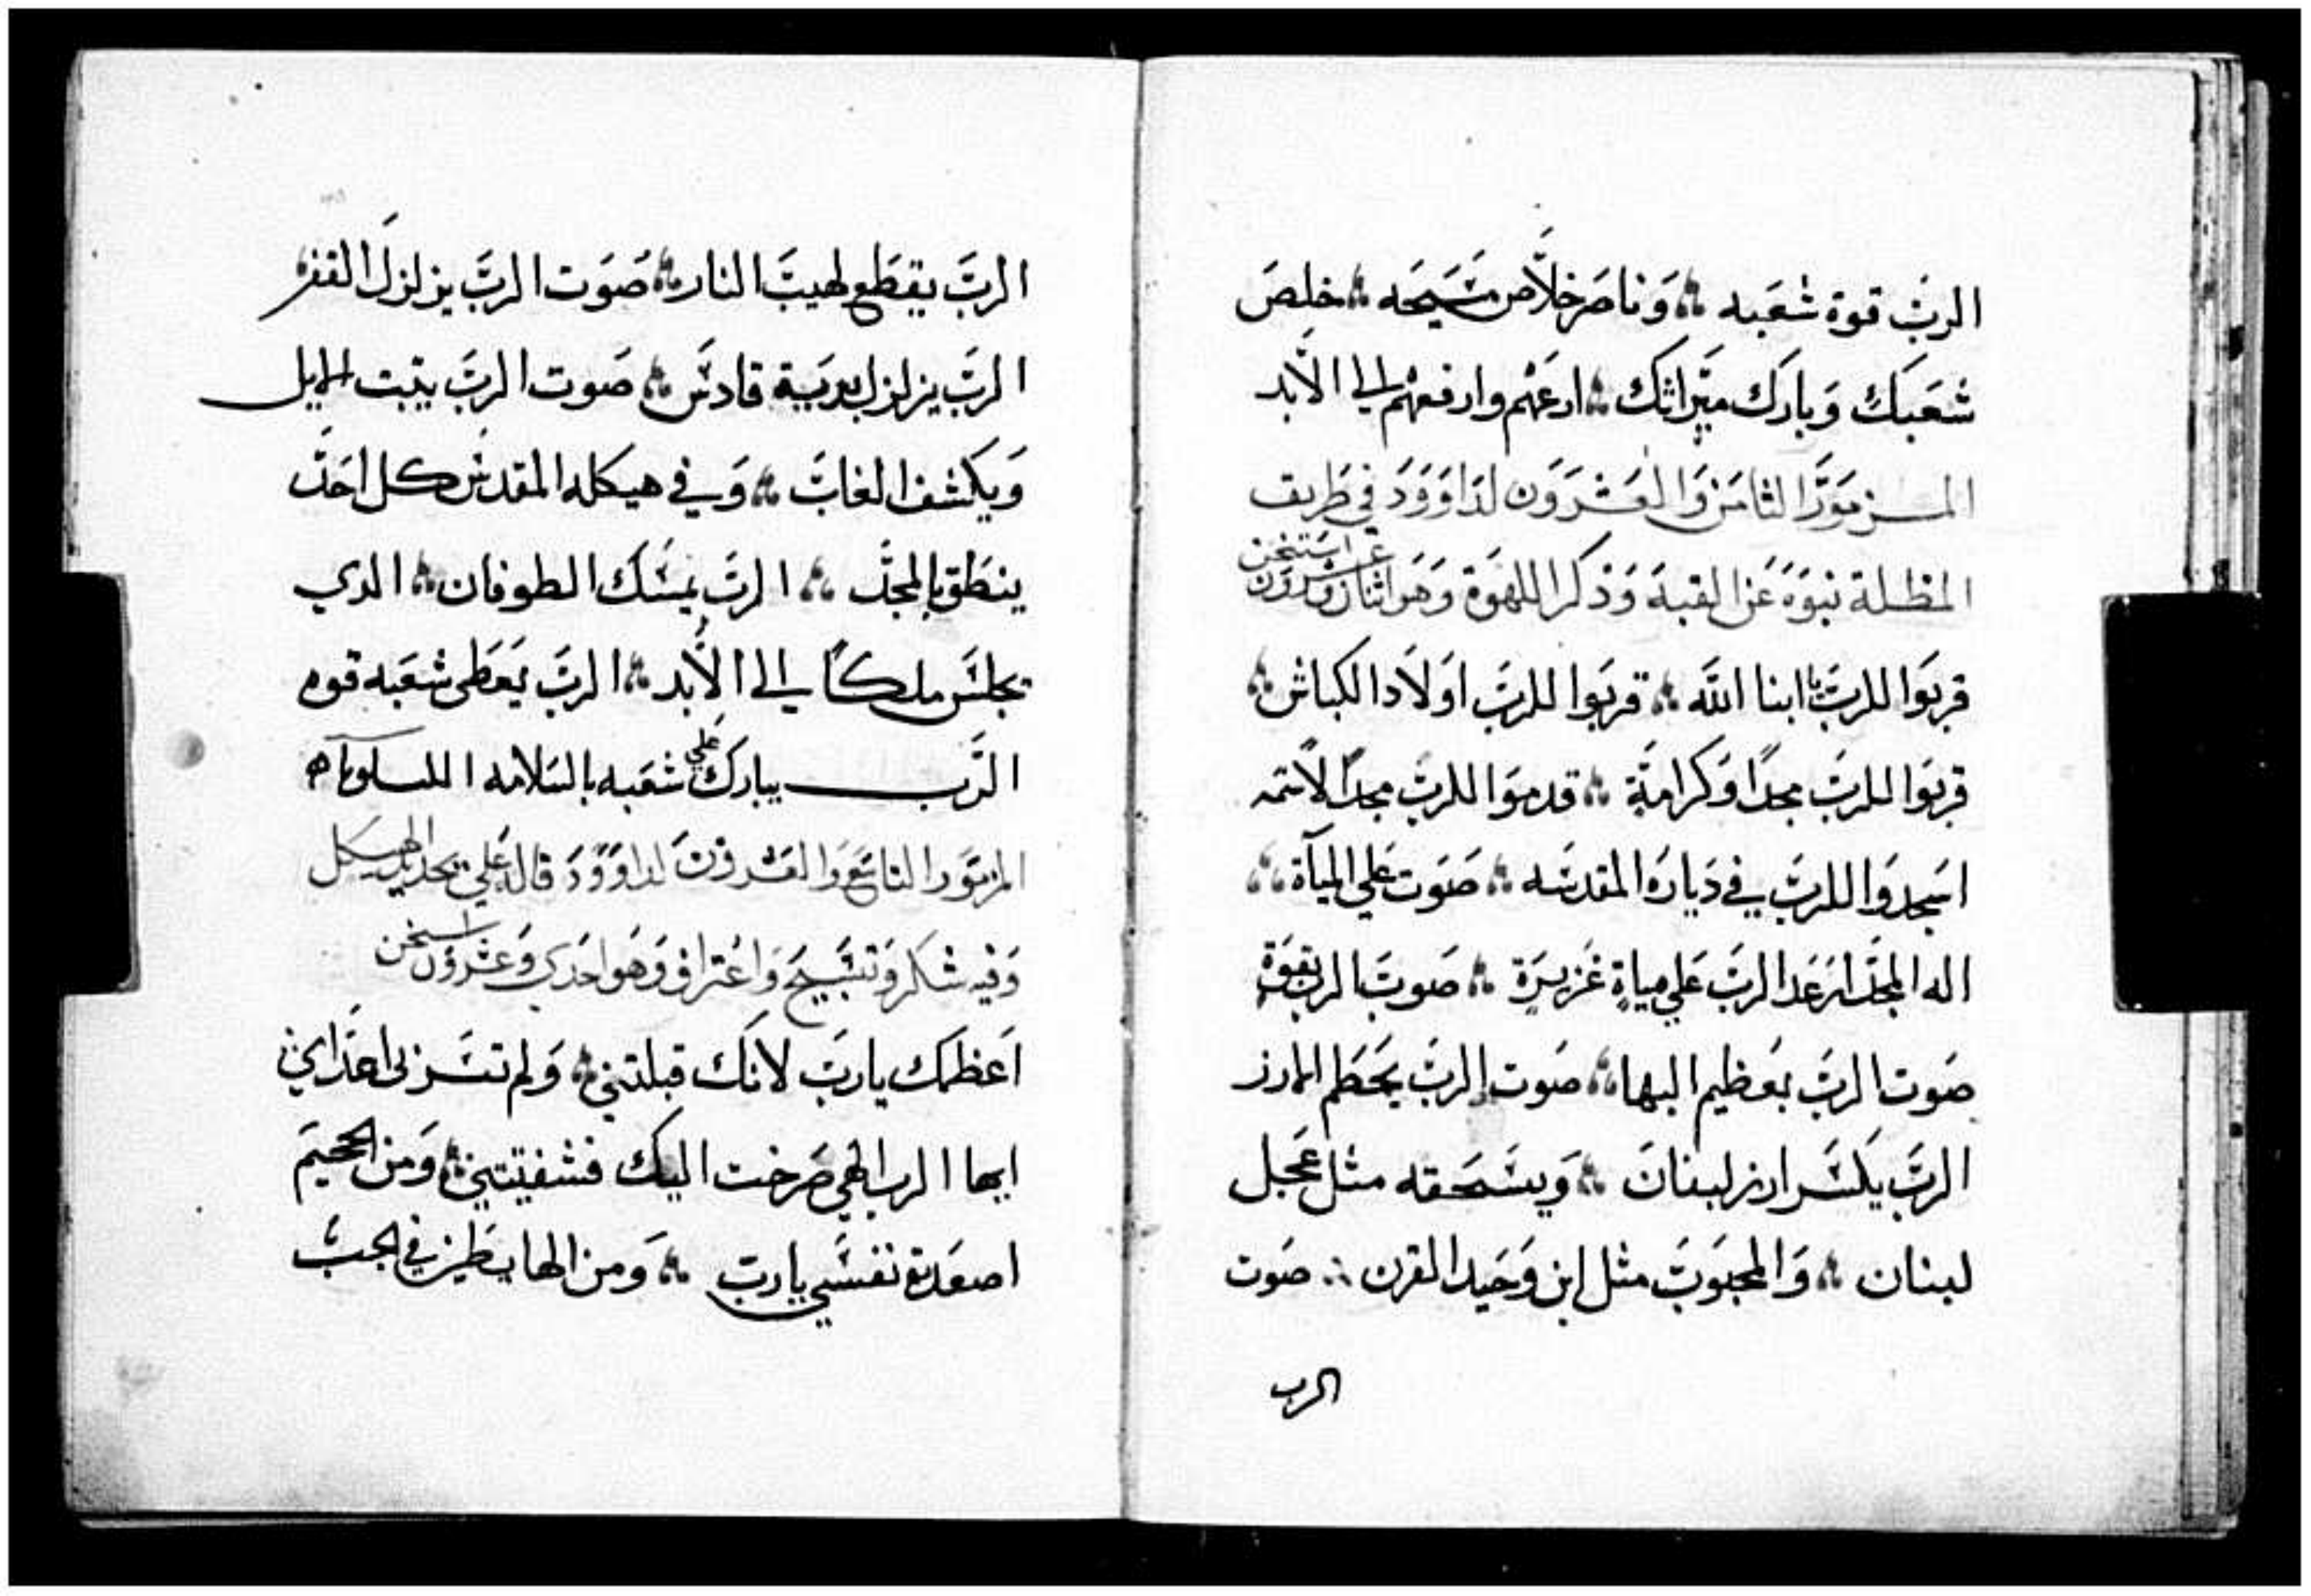 الربّ قوة شعَبه ؞ وَناصَر خلاَّص مسَيحَه ؞ خلصَ
شعَبكَ وَباركَ ميَراثكَ ؞ ارعَهم وارفعهم الي الاَبد
المزموَر الثامَن وَالعَشرَوَن لدَاوَوَدَ في طَريف
المظلة نبوَة عَن القبة وَذكر اللهوَة وَهوَ اثنان وعشرَوَن استيخن
قربَوا للربَ يا ابنا الله ؞ قربَوا للربَ اوَلاَد الكباش ؞
قربَوا للربَ مجداً وَكرامَة ؞ قدموَا للربَ مجداً لاَسَمه
اسَجدوَا للربَ في دَياره المقدسَه ؞ صَوَت علي المياَة ؞
اله المجدَ ارعَد الربَ عَلي مياة غَزيرَة ؞ صَوت الرب بقوَة
صَوت الربَ بعَظيم البها ؞ صَوت الربَ يحَطم الارز
الربَ يكسَر ارز لبنانَ ؞ وَيسَحَقه مثل عَجل
لبنان ؞ وَالمحبوَبَ مثل ابن وَحَيد القرن ؞ صَوت
الرب
الربَ يقطَع لهيبَ النار ؞ صَوَت الربَ يزلزلَ القفر
الربَ يزلزل بريَة قادسَ ؞ صَوت الربَ يتبت الايل
وَيكشف الغابَ ؞ وَفي هيكله المقدس كل احَدَ
ينطَق بالمجدَ ؞ الربَ يمسَك الطوفان ؞ الدي
يجلسَ ملكاً الي الاَبد ؞ الربَ يَعَطى شعَبه قوه
الرَب يبارك علي شعَبه بالسَلامه الليلويا ه
المزموَر التاسَع وَالعَشروَن لداوَوَدَ قاله عَلي تجديد الهيكل
وَفيه شكر وَتسَبيح وَاعَتراف وَهوَ احَدي وَعَشروَن استيخن
اَعَظمك ياربَ لانَك قبلتني ؞ وَلم تسَر بى اعَدَاي
ايها الرب الهي صَرخت اليك فشفيتني ؞ وَمن الجحيَم
اصعَدت نفسَي ياربَ ؞ وَمن الهابطَين في الجبَ